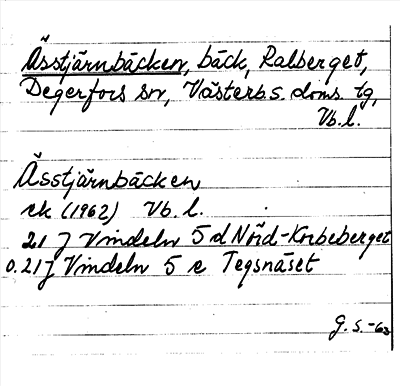 Åsstjärnbäcken, bäck, Ralberget,
Degerfors sn, Västerb. s. doms. tg,
Vb. l.
Åsstjärnbäcken
rk (1962) Vb. l.
21 J Vindeln 5 d Nörd-Korbeberget
o. 21 J Vindeln 5 e Tegsnäset
G. S. -63